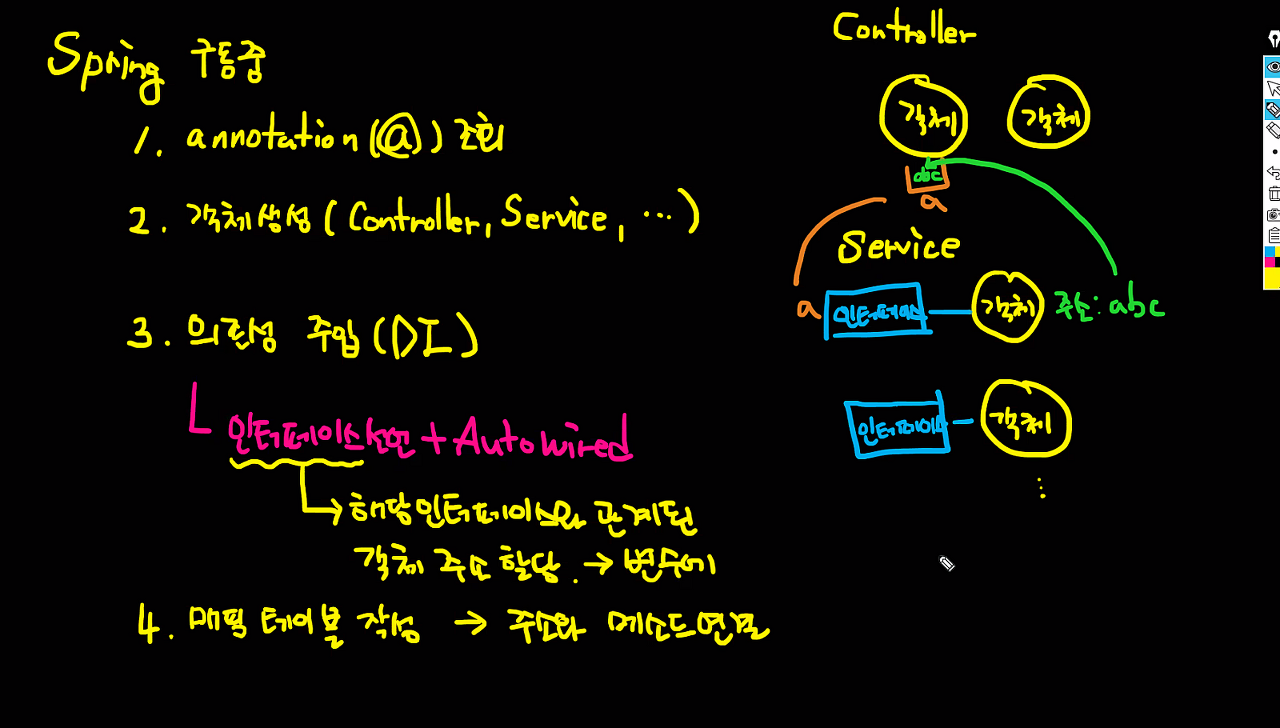 Spring 구동중
1. annotation(@) 조회
2. 객체생성 (Controller, Service, ...)
3. 의존성 주입(DI)
인터페이스선언 + Autowired
해당인터페이스와 관계된
객체 주소 할당. → 변수에
4. 매핑 테이블 작성 → 주소와 메소드연결
Controller
객체 객체
abc
a
Service
a 인터페이스 객체 주소: abc
인터페이스 객체
⋮